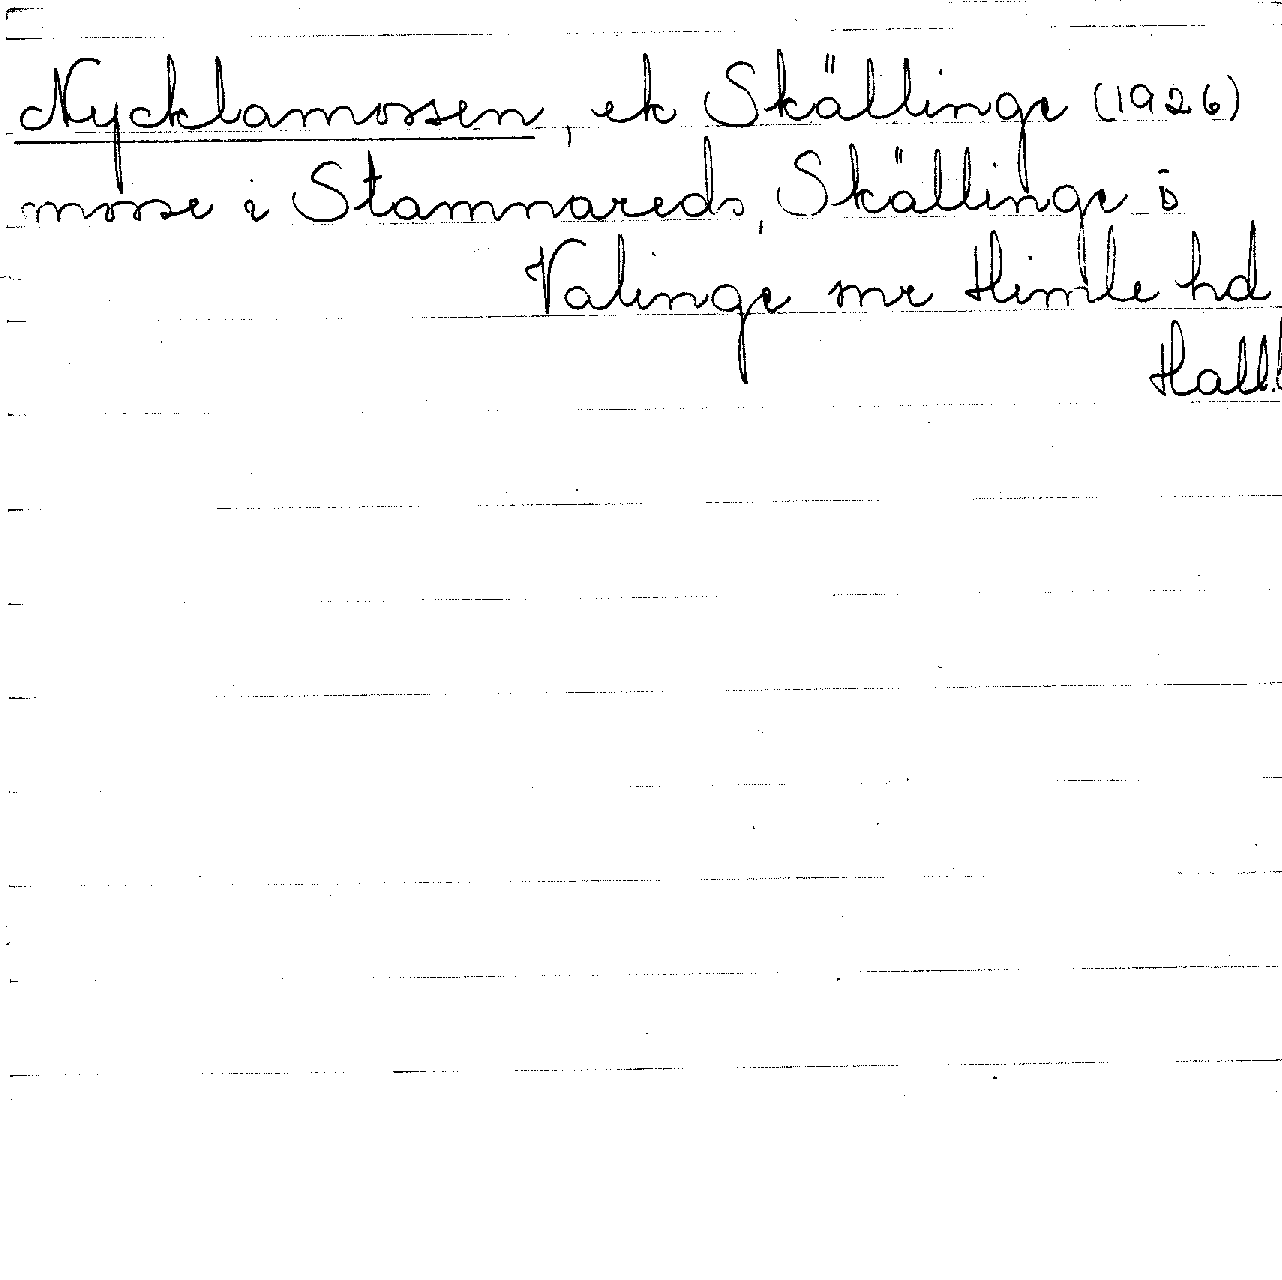 Nycklamossen, ek Skällinge (1926)
mosse i Stamnareds, Skällinge o
Valinge snr Himle hd
Hall.